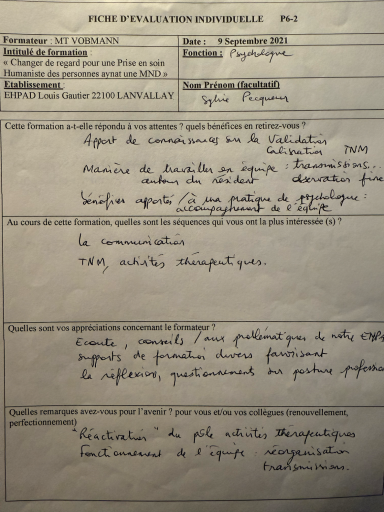 FICHE D'EVALUATION INDIVIDUELLE P6-2
Formateur : MT VOBMANN
Date : 9 Septembre 2021
Intitulé de formation :
« Changer de regard pour une Prise en soin
Humaniste des personnes aynat une MND »
Fonction : Psychologue
Etablissement :
EHPAD Louis Gautier 22100 LANVALLAY
Nom Prénom (facultatif)
Sylvie Pecqueur
Cette formation a-t-elle répondu à vos attentes ? quels bénéfices en retirez-vous ?
Apport de connaissances sur la Validation
TNM
Manière de travailler en équipe : transmissions...
autour du résident observation fine
bénéfices apportés / à ma pratique de psychologue :
accompagnement de l'équipe
Au cours de cette formation, quelles sont les séquences qui vous ont la plus intéressée (s) ?
la communication
TNM, activités thérapeutiques.
Quelles sont vos appréciations concernant le formateur ?
Ecoute, conseils / aux problématiques de notre EHPA
supports de formation divers favorisant
la réflexion, questionnements sur posture professio
Quelles remarques avez-vous pour l'avenir ? pour vous et/ou vos collègues (renouvellement,
perfectionnement)
"Réactivation" du pôle activités thérapeutiques
Fonctionnement de l'équipe : réorganisation
transmissions.